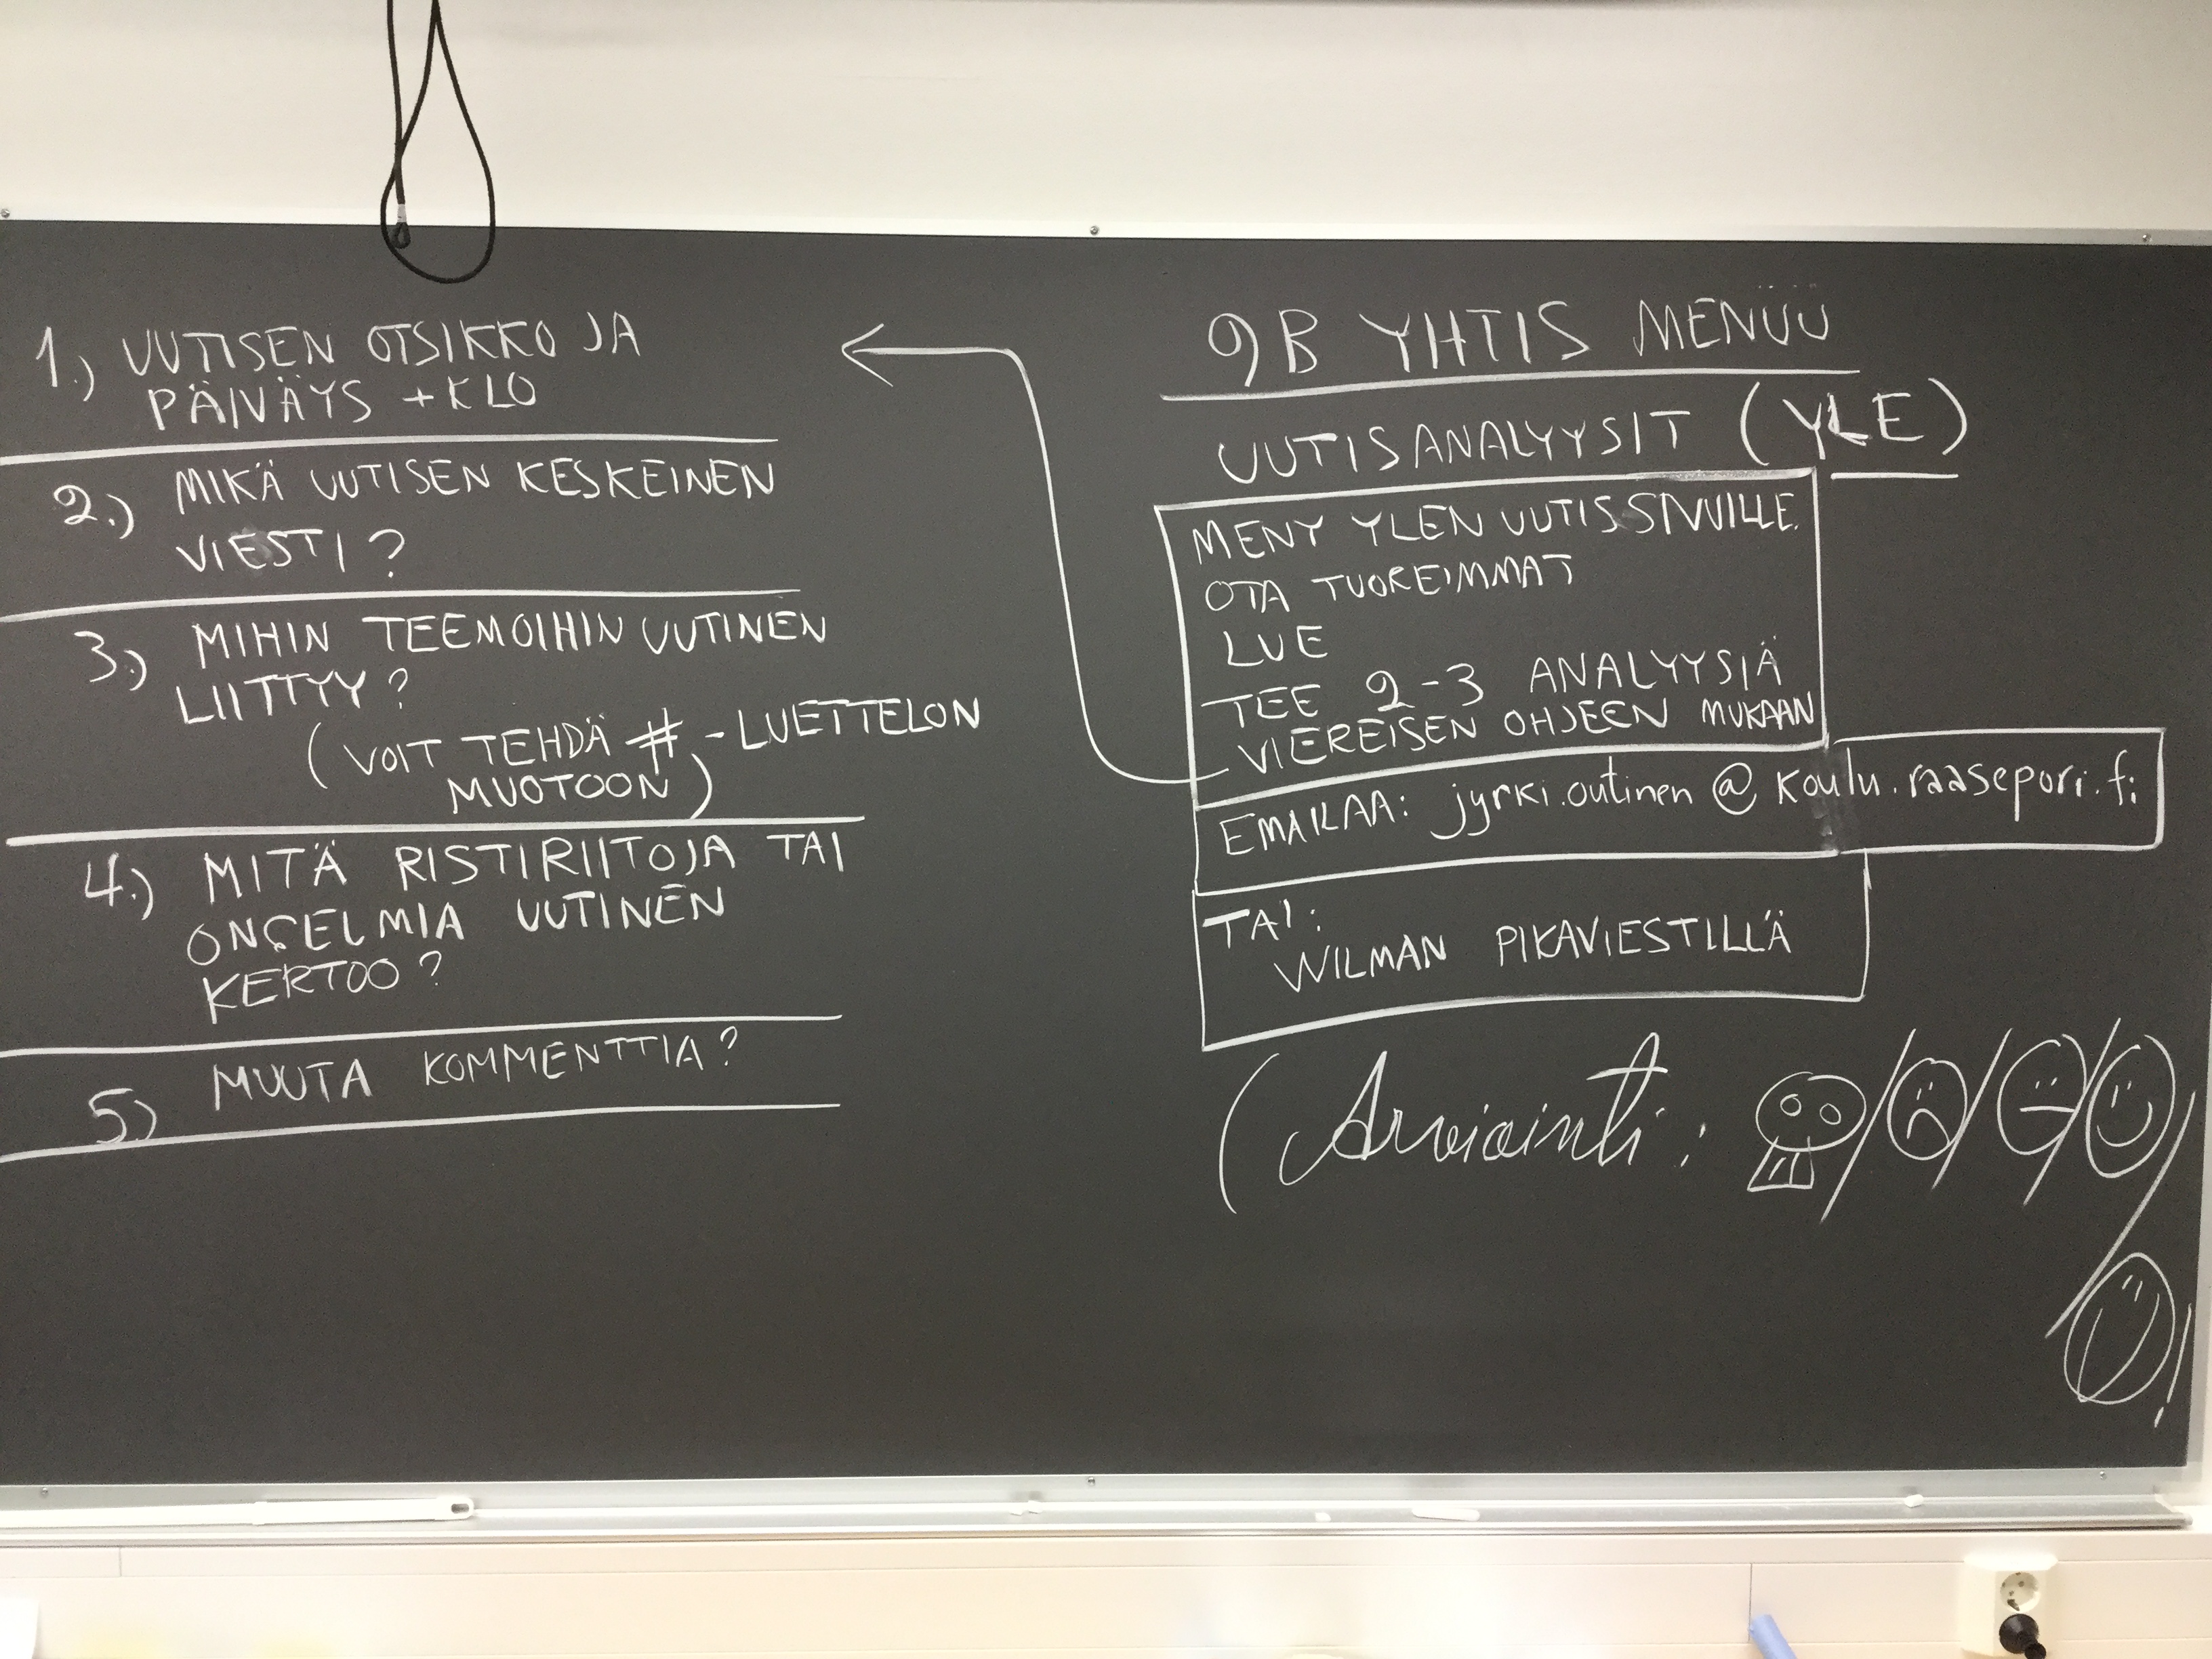 1.) UUTISEN OTSIKKO JA
PÄIVÄYS + KLO
2.) MIKÄ UUTISEN KESKEINEN
VIESTI?
3.) MIHIN TEEMOIHIN UUTINEN
LIITTYY?
(VOIT TEHDÄ # -LUETTELON
MUOTOON)
4.) MITÄ RISTIRIITOJA TAI
ONGELMIA UUTINEN
KERTOO?
5.) MUUTA KOMMENTTIA?
9B YHTIS MENÜÜ
UUTISANALYYSIT (YLE)
MENY YLEN UUTISSIVUILLE.
OTA TUOREIMMAT
LUE
TEE 2-3 ANALYYSIÄ
VIEREISEN OHJEEN MUKAAN
EMAILAA: jyrki.outinen@koulu.raasepori.fi
TAI:
WILMAN PIKAVIESTILLÄ
(Arviointi: